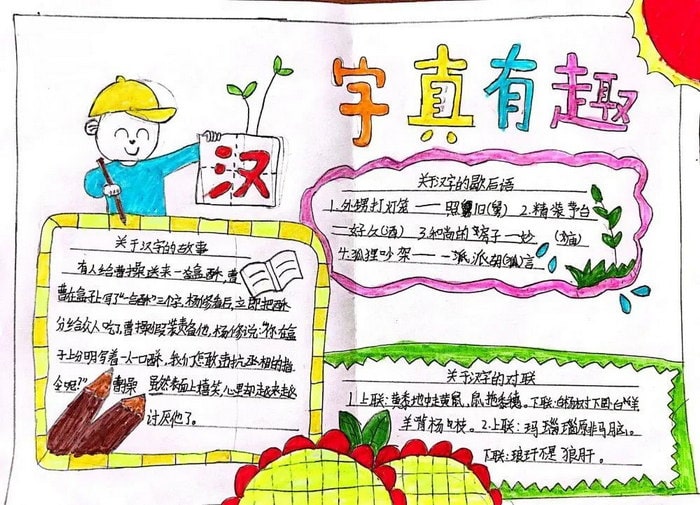 汉字真有趣
关于汉字的故事
有人给曹操送来一盒酥,曹
曹在盒子上写了“一合酥”三个字,杨修看后,立即把酥
分给众人吃了,曹操假装责备他,杨修说:“你在盒
子上分明写着一人一口酥,我们怎敢违抗丞相的指
令呢?”曹操虽然表面上嬉笑,心里却越来越
讨厌他了。
关于汉字的歇后语
1.外甥打灯笼——照舅旧(舅) 2.精装茅台
——好久(酒) 3.和尚的房子—妙 (庙)
4.狐狸吵架——一派,派胡(狐)言
关于汉字的对联
1.上联:黄黍地中走黄鼠,鼠拖黍穗。下联:白杨树下卧白羊
羊啃杨枝。2.上联:玛瑙原非马脑。
下联:琅玕不是狼肝。